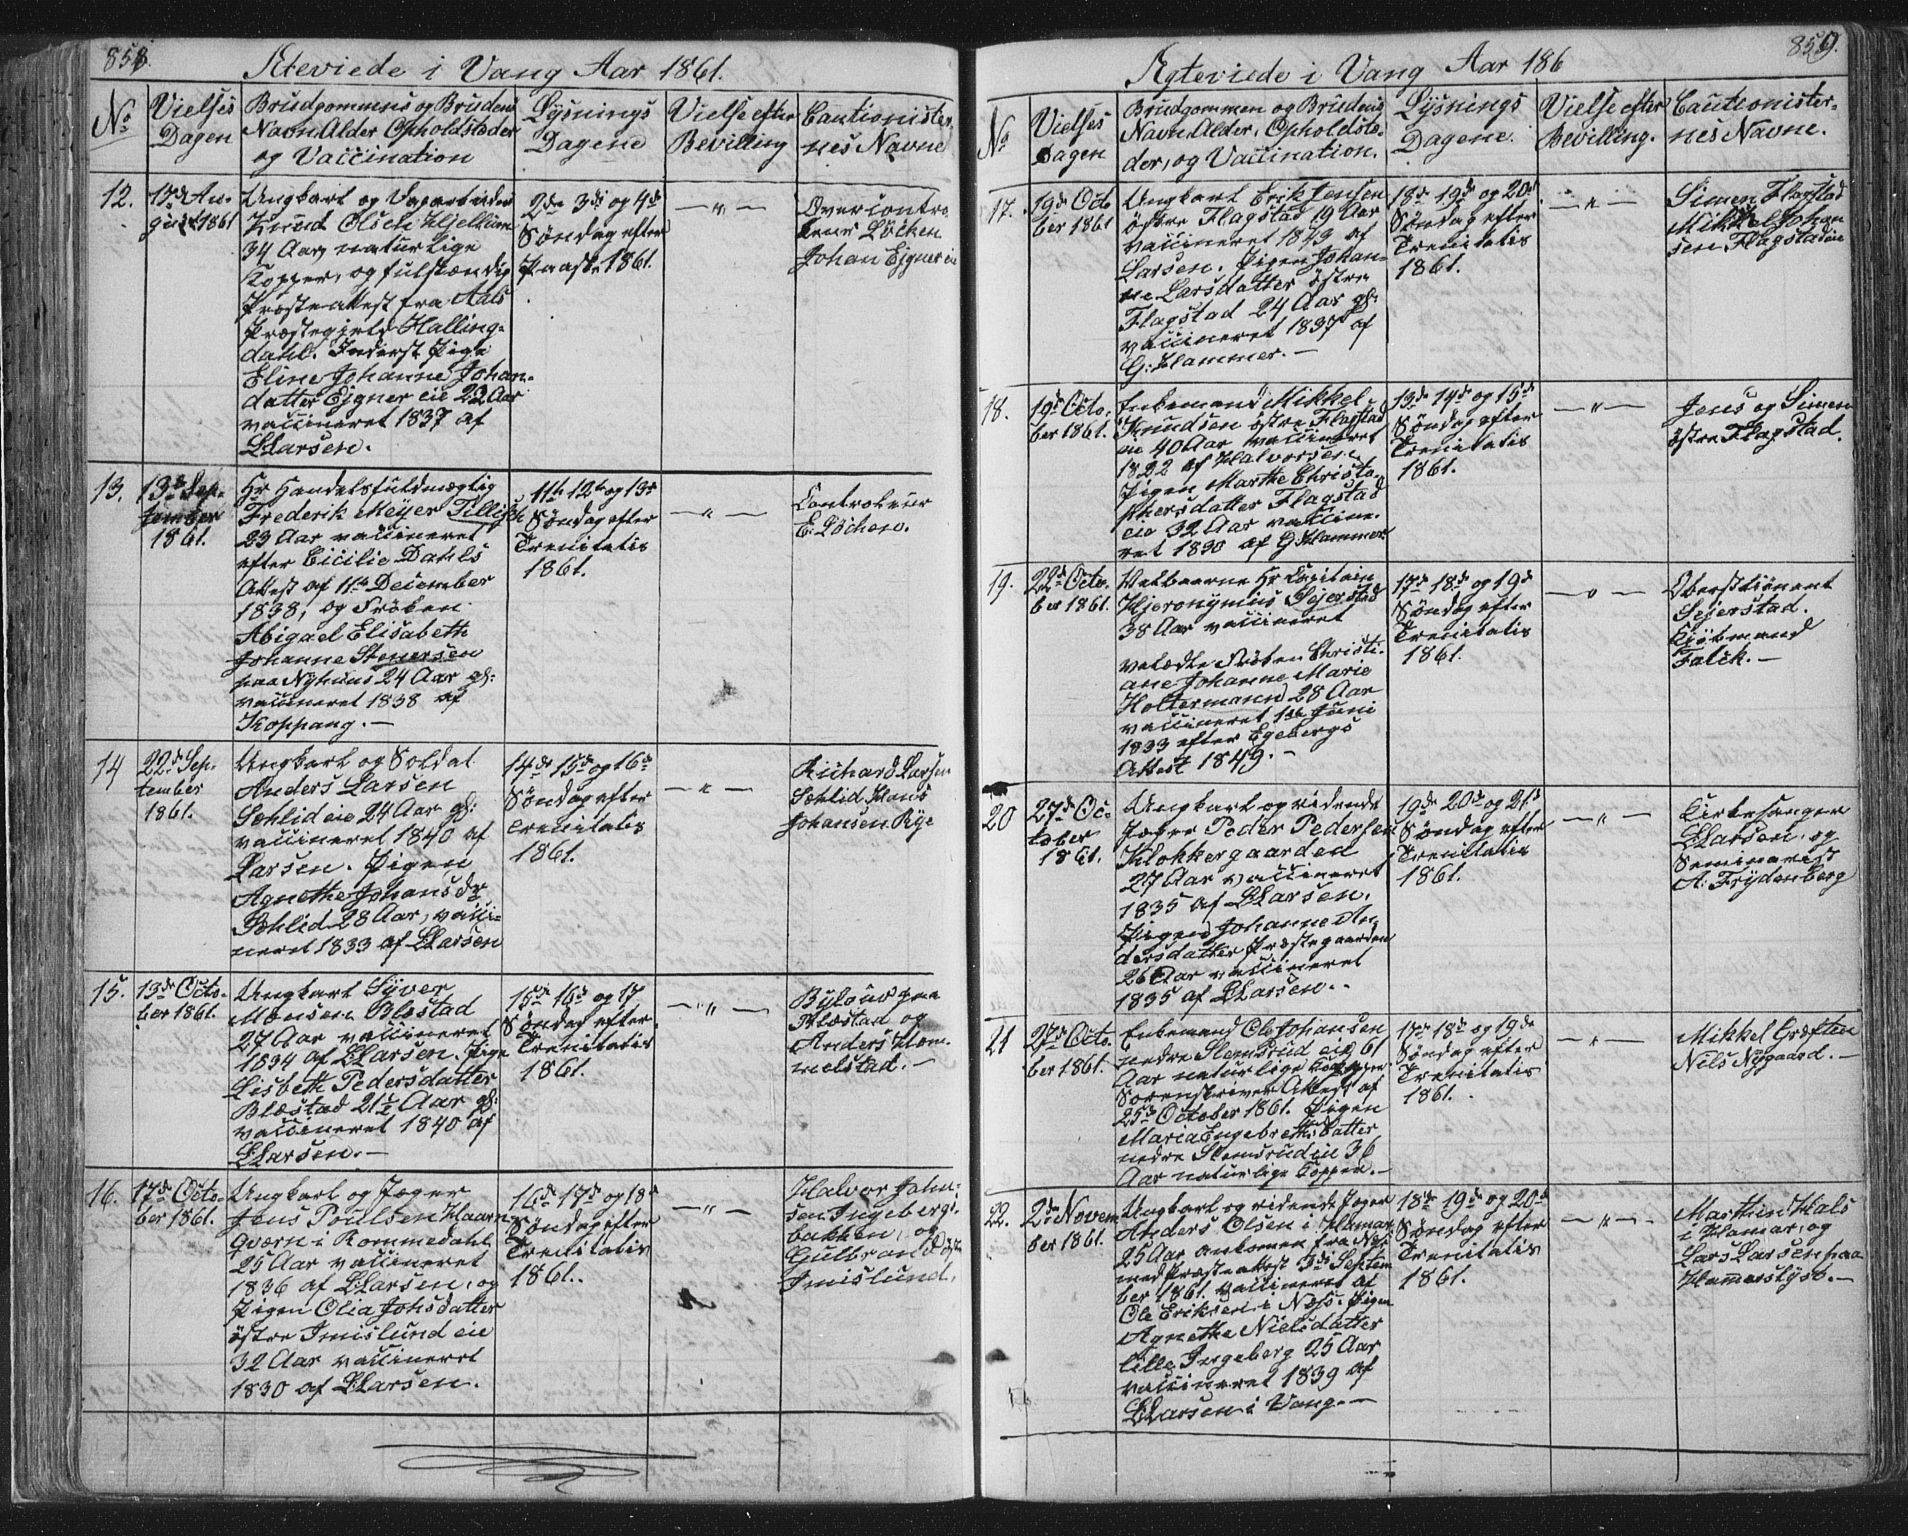 858.
Ækteviede i Vang Aar 1861.
No
Vielses
Dagen
Brudgommens og Brudens
Navn Alder Opholdsteder
og Vaccination
Lysnings
Dagene
Vielse efter
Bevilling
Cautionister-
nes Navne
12.
17de Au-
gust 1861
Ungkarl og
Knud Olsen Hjellum
34 Aar, naturlige
Kopper, og fulstændig
Presteattest fra Aals
Præstegjeld Halling-
dahl. Inderst Pige
Eline Johanne Johan-
datter Ejgner eie 22 Aar
vaccineret 1837 af
LLarsen.
2de 3die og 4de
Søndag efter
Paaske 1861.
— " —
Overcontro-
leur Löchen
Johan Ejgner eie
13.
13de Sep-
tember
1861.
Hr Handelsfuldmægtig
Frederik Meyer Tillisch
23 Aar vaccineret
efter Cicilie Dahls
Attest af 11te December
1838, og Frøken
Abigael Elisabeth
Johanne Stenersen
paa Nyhuus 24 Aar gl:
vaccineret 1838 af
Koppang. —
11te 12te og 13de
Søndag efter
Trenitatis
1861.
— " —
Controleur
E. Löchen.
14
22de Sep-
tember
1861.
Ungkarl og Soldat
Anders Larsen
Sehlid eie 24 Aar gl:
vaccineret 1840 af
Larsen. Pigen
Agnethe Johansdr
Sehlid 28 Aar, vacci-
neret 1833 af LLarsen
14de 15de og 16de
Søndag efter
Trenitatis
1861.
— " —
Richard Larsen
Sehlid Hans
Johansen Rye
15.
13de Octo-
ber 1861.
Ungkarl Syver
Monsen Blæstad
27 Aar vaccineret
1834 af LLarsen. Pige
Lisbeth Pedersdatter
Blæstad 21½ Aar gl:
vaccineret 1840 af
LLarsen. —
15de 16de og 17
Søndag efter
Trenitatis
1861.
— " —
paa
Blæstad og
Anders Hom-
melstad. —
16.
17de Octo-
ber 1861.
Ungkarl og Jæger
Jens Poulsen Haarn-
qværn i Rommedahl
25 Aar vaccineret
1836 af LLarsen, og
Pigen Olia Johsdatter
østre Imislund eie
32 Aar vaccineret
1830 af LLarsen.
16de 17de og 18de
Søndag efter
Trenitatis
1861.
— " —
Halvor John-
sen Ingebergs-
bakken, og
Gulbrand
Imislund.
859.
Ægteviede i Vang Aar 186
No
Vielses
Dagen
Brudgommen og Brudens
Navn Alder, Opholdste-
der, og Vaccination.
Lysnings
Dagene.
Vielse efter
Bevilling.
Cautionister-
nes Navne.
17.
19de Octo
ber 1861
Ungkarl Erik Jensen
östre Flagstad 19 Aar
vaccineret 1843 af
Larsen. Pigen Johan-
ne Larsdatter östre
Flagstad 24 Aar gl:
vaccineret 1837 af
G: Hammer. —
18de 19de og 20de
Søndag efter
Trenitatis
1861.
— " —
Simen Flagstad
Mikkel Johan
sen Flagstadeie
18.
19de Octo-
ber 1861.
Enkemand Mikkel
Knudsen östre Flagstad
eie 40 Aar vaccineret
1822 af Halvorsen
Pigen Marthe Christo-
phersdatter Flagstad
eie 32 Aar vaccine-
ret 1830 af G Hammer
13de 14de og 15de
Søndag efter
Trenitatis
1861.
— " —
Jens og Simen
östre Flagstad.
19.
22de Octo-
ber 1861.
Velbaarne Hr Capitain
Hjeronymus Sejerstad
38 Aar vaccineret
velædle Frøken Christi-
ane Johanne Marie
Holtermann 28 Aar
vaccineret 1ste Juni
1833 efter Egebergs
Attest 1849. —
17de 18de og 19de
Søndag efter
Trenitatis
1861.
— " —
Oberstliönent
Sejerstad.
Kjöbmand
Falck. —
20
27de Oc-
tober
1861.
Ungkarl og ridende
Jæger Peder Pedersen
Klokkergaarden
27 Aar vaccineret
1835 af LLarsen.
Pigen Johanne An-
dersdatter Præstegaarden
26 Aar vaccineret
1835 af LLarsen.
19de 20de og 21de
Søndag efter
Trenitatis
1861.
— " —
Kirkesanger
LLarsen, og
Seminarist
A: Frydenberg
21
27de Octo-
ber 1861.
Enkemand Ole Johansen
nedre Slemsrud eie 61
Aar naturlige Kopper
Sorenskriver Attest af
25de October 1861. Pigen
Maria Engebrethsdatter
nedre Slemsrud eie 36
Aar naturlige Kopper. —
17de 18de og 19de
Søndag efter
Trenitatis
1861.
— " —
Mikkel Grøften
Nils Nygaard. —
22.
2den Novem
ber 1861.
Ungkarl og ridende Jæger
Anders Olsen i Hamar
25 Aar ankomen fra Næs
med Presteattest 3die Septem
ber 1861. vaccineret af
Ole Eriksen i Næs. Pigen
Agnethe Nielsdatter
lille Ingeberg 25 Aar
vaccineret 1839 af
LLarsen i Vang. —
18de 19de og 20de
Søndag efter
Trenitatis
1861.
— " —
Marthin Hals
i Hamar, og
Lars Larsen paa
Hamerslyst. —